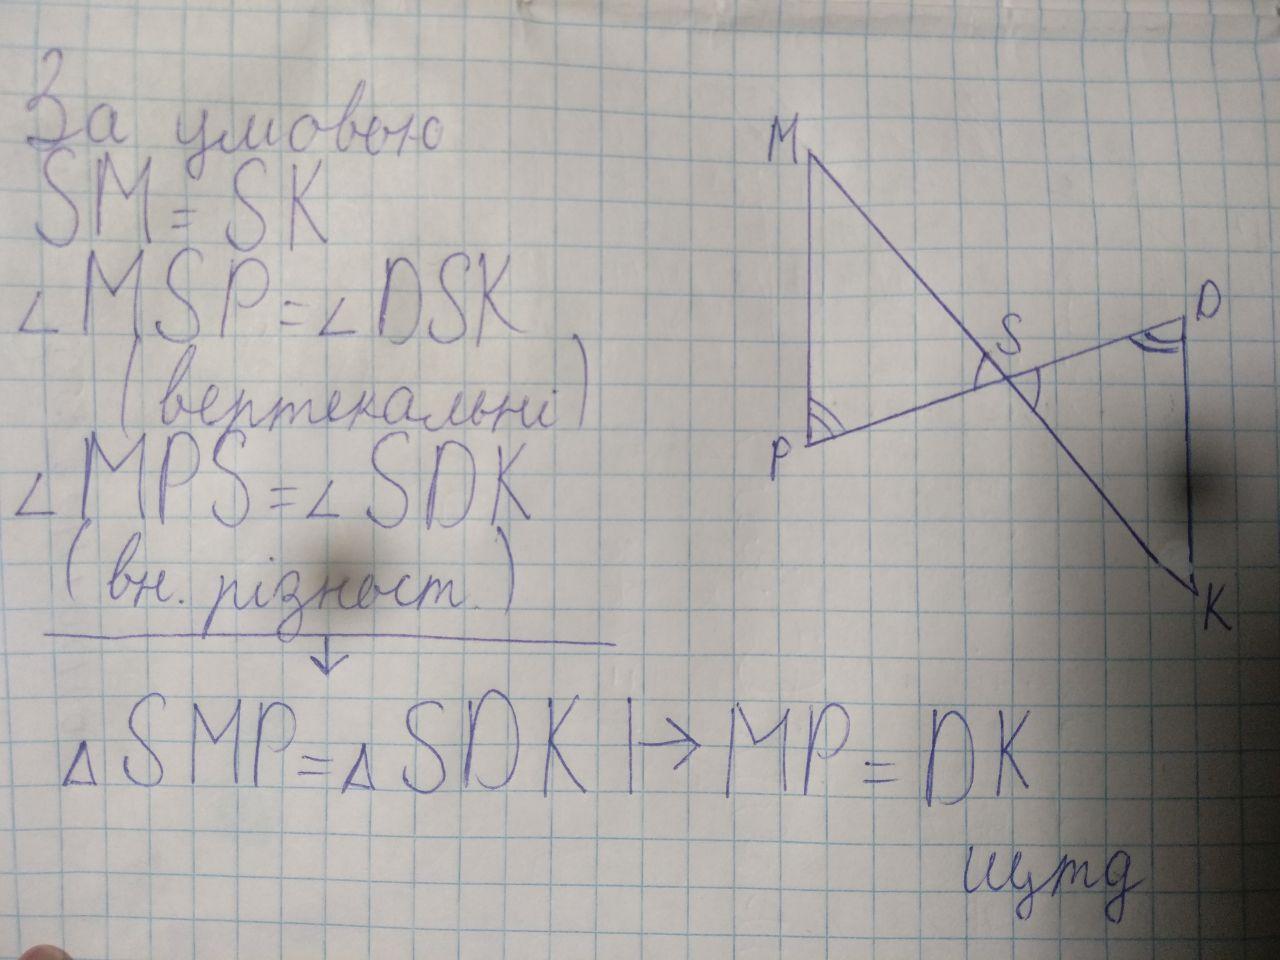 За умовою
SM = SK
∠MSP = ∠DSK
(вертекальні)
∠MPS = ∠SDK
(вн. різност.)
△SMP = △SDK |→ MP = DK
щутд
M
S
D
P
K